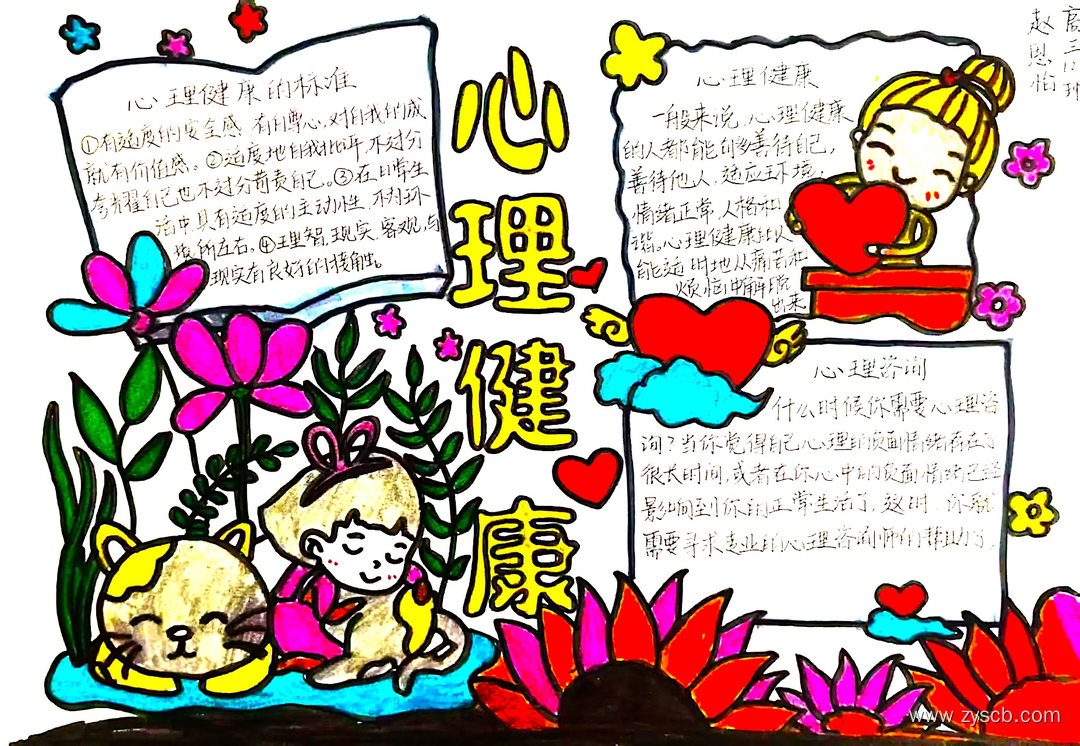 心理健康的标准
①有适度的安全感 有自尊心,对自我的成
就有价值感。②适度地自我批评,不过分
夸耀自己也不过分苛责自己。③在日常生
活中具有适度的主动性,不为环
境所左右。④理智,现实,客观,与
现实有良好的接触。
心理健康
心理健康
一般来说,心理健康
的人都能够善待自己,
善待他人,适应环境,
情绪正常,人格和
谐。心理健康
能适时地从痛苦和
烦恼中解脱
出来
心理咨询
什么时候你需要心理咨
询?当你觉得自己心理的负面情绪存在了
很长时间,或者在你心中的负面情绪已经
影响到你的正常生活了,这时,你就
需要寻求专业的心理咨询师的帮助了。
高三
赵恩怡
www.zyscb.com